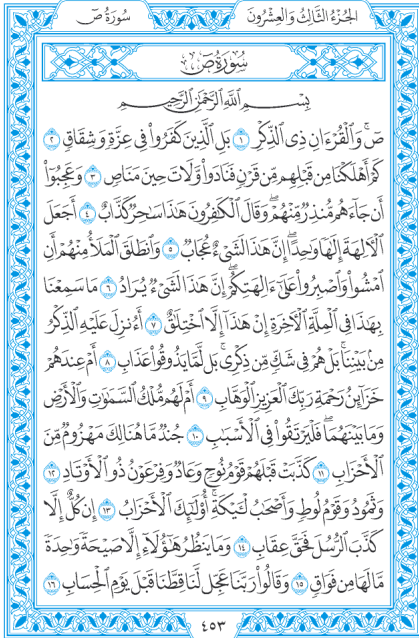 الجُزْءُ الثَّالِثُ وَالعِشْرُونَ
سُورَةُ صٓ
سُورَةُ صٓ
بِسْمِ ٱللَّهِ ٱلرَّحْمَٰنِ ٱلرَّحِيمِ
صٓۚ وَٱلْقُرْءَانِ ذِى ٱلذِّكْرِ ١ بَلِ ٱلَّذِينَ كَفَرُوا۟ فِى عِزَّةٍ وَشِقَاقٍ ٢
كَمْ أَهْلَكْنَا مِن قَبْلِهِم مِّن قَرْنٍ فَنَادَوا۟ وَّلَاتَ حِينَ مَنَاصٍ ٣ وَعَجِبُوٓا۟
أَن جَآءَهُم مُّنذِرٌ مِّنْهُمْۖ وَقَالَ ٱلْكَٰفِرُونَ هَٰذَا سَٰحِرٌ كَذَّابٌ ٤ أَجَعَلَ
ٱلْءَالِهَةَ إِلَٰهًا وَٰحِدًاۖ إِنَّ هَٰذَا لَشَىْءٌ عُجَابٌ ٥ وَٱنطَلَقَ ٱلْمَلَأُ مِنْهُمْ أَنِ
ٱمْشُوا۟ وَٱصْبِرُوا۟ عَلَىٰٓ ءَالِهَتِكُمْۖ إِنَّ هَٰذَا لَشَىْءٌ يُرَادُ ٦ مَا سَمِعْنَا
بِهَٰذَا فِى ٱلْمِلَّةِ ٱلْءَاخِرَةِ إِنْ هَٰذَآ إِلَّا ٱخْتِلَٰقٌ ٧ أَءُنزِلَ عَلَيْهِ ٱلذِّكْرُ
مِنۢ بَيْنِنَاۚ بَلْ هُمْ فِى شَكٍّ مِّن ذِكْرِىۖ بَل لَّمَّا يَذُوقُوا۟ عَذَابِ ٨ أَمْ عِندَهُمْ
خَزَآئِنُ رَحْمَةِ رَبِّكَ ٱلْعَزِيزِ ٱلْوَهَّابِ ٩ أَمْ لَهُم مُّلْكُ ٱلسَّمَٰوَٰتِ وَٱلْأَرْضِ
وَمَا بَيْنَهُمَاۖ فَلْيَرْتَقُوا۟ فِى ٱلْأَسْبَٰبِ ١٠ جُندٌ مَّا هُنَالِكَ مَهْزُومٌ مِّنَ
ٱلْأَحْزَابِ ١١ كَذَّبَتْ قَبْلَهُمْ قَوْمُ نُوحٍ وَعَادٌ وَفِرْعَوْنُ ذُو ٱلْأَوْتَادِ ١٢
وَثَمُودُ وَقَوْمُ لُوطٍ وَأَصْحَٰبُ لْـَٔيْكَةِۚ أُو۟لَٰٓئِكَ ٱلْأَحْزَابُ ١٣ إِن كُلٌّ إِلَّا
كَذَّبَ ٱلرُّسُلَ فَحَقَّ عِقَابِ ١٤ وَمَا يَنظُرُ هَٰٓؤُلَآءِ إِلَّا صَيْحَةً وَٰحِدَةً
مَّا لَهَا مِن فَوَاقٍ ١٥ وَقَالُوا۟ رَبَّنَا عَجِّل لَّنَا قِطَّنَا قَبْلَ يَوْمِ ٱلْحِسَابِ ١٦
٤٥٣